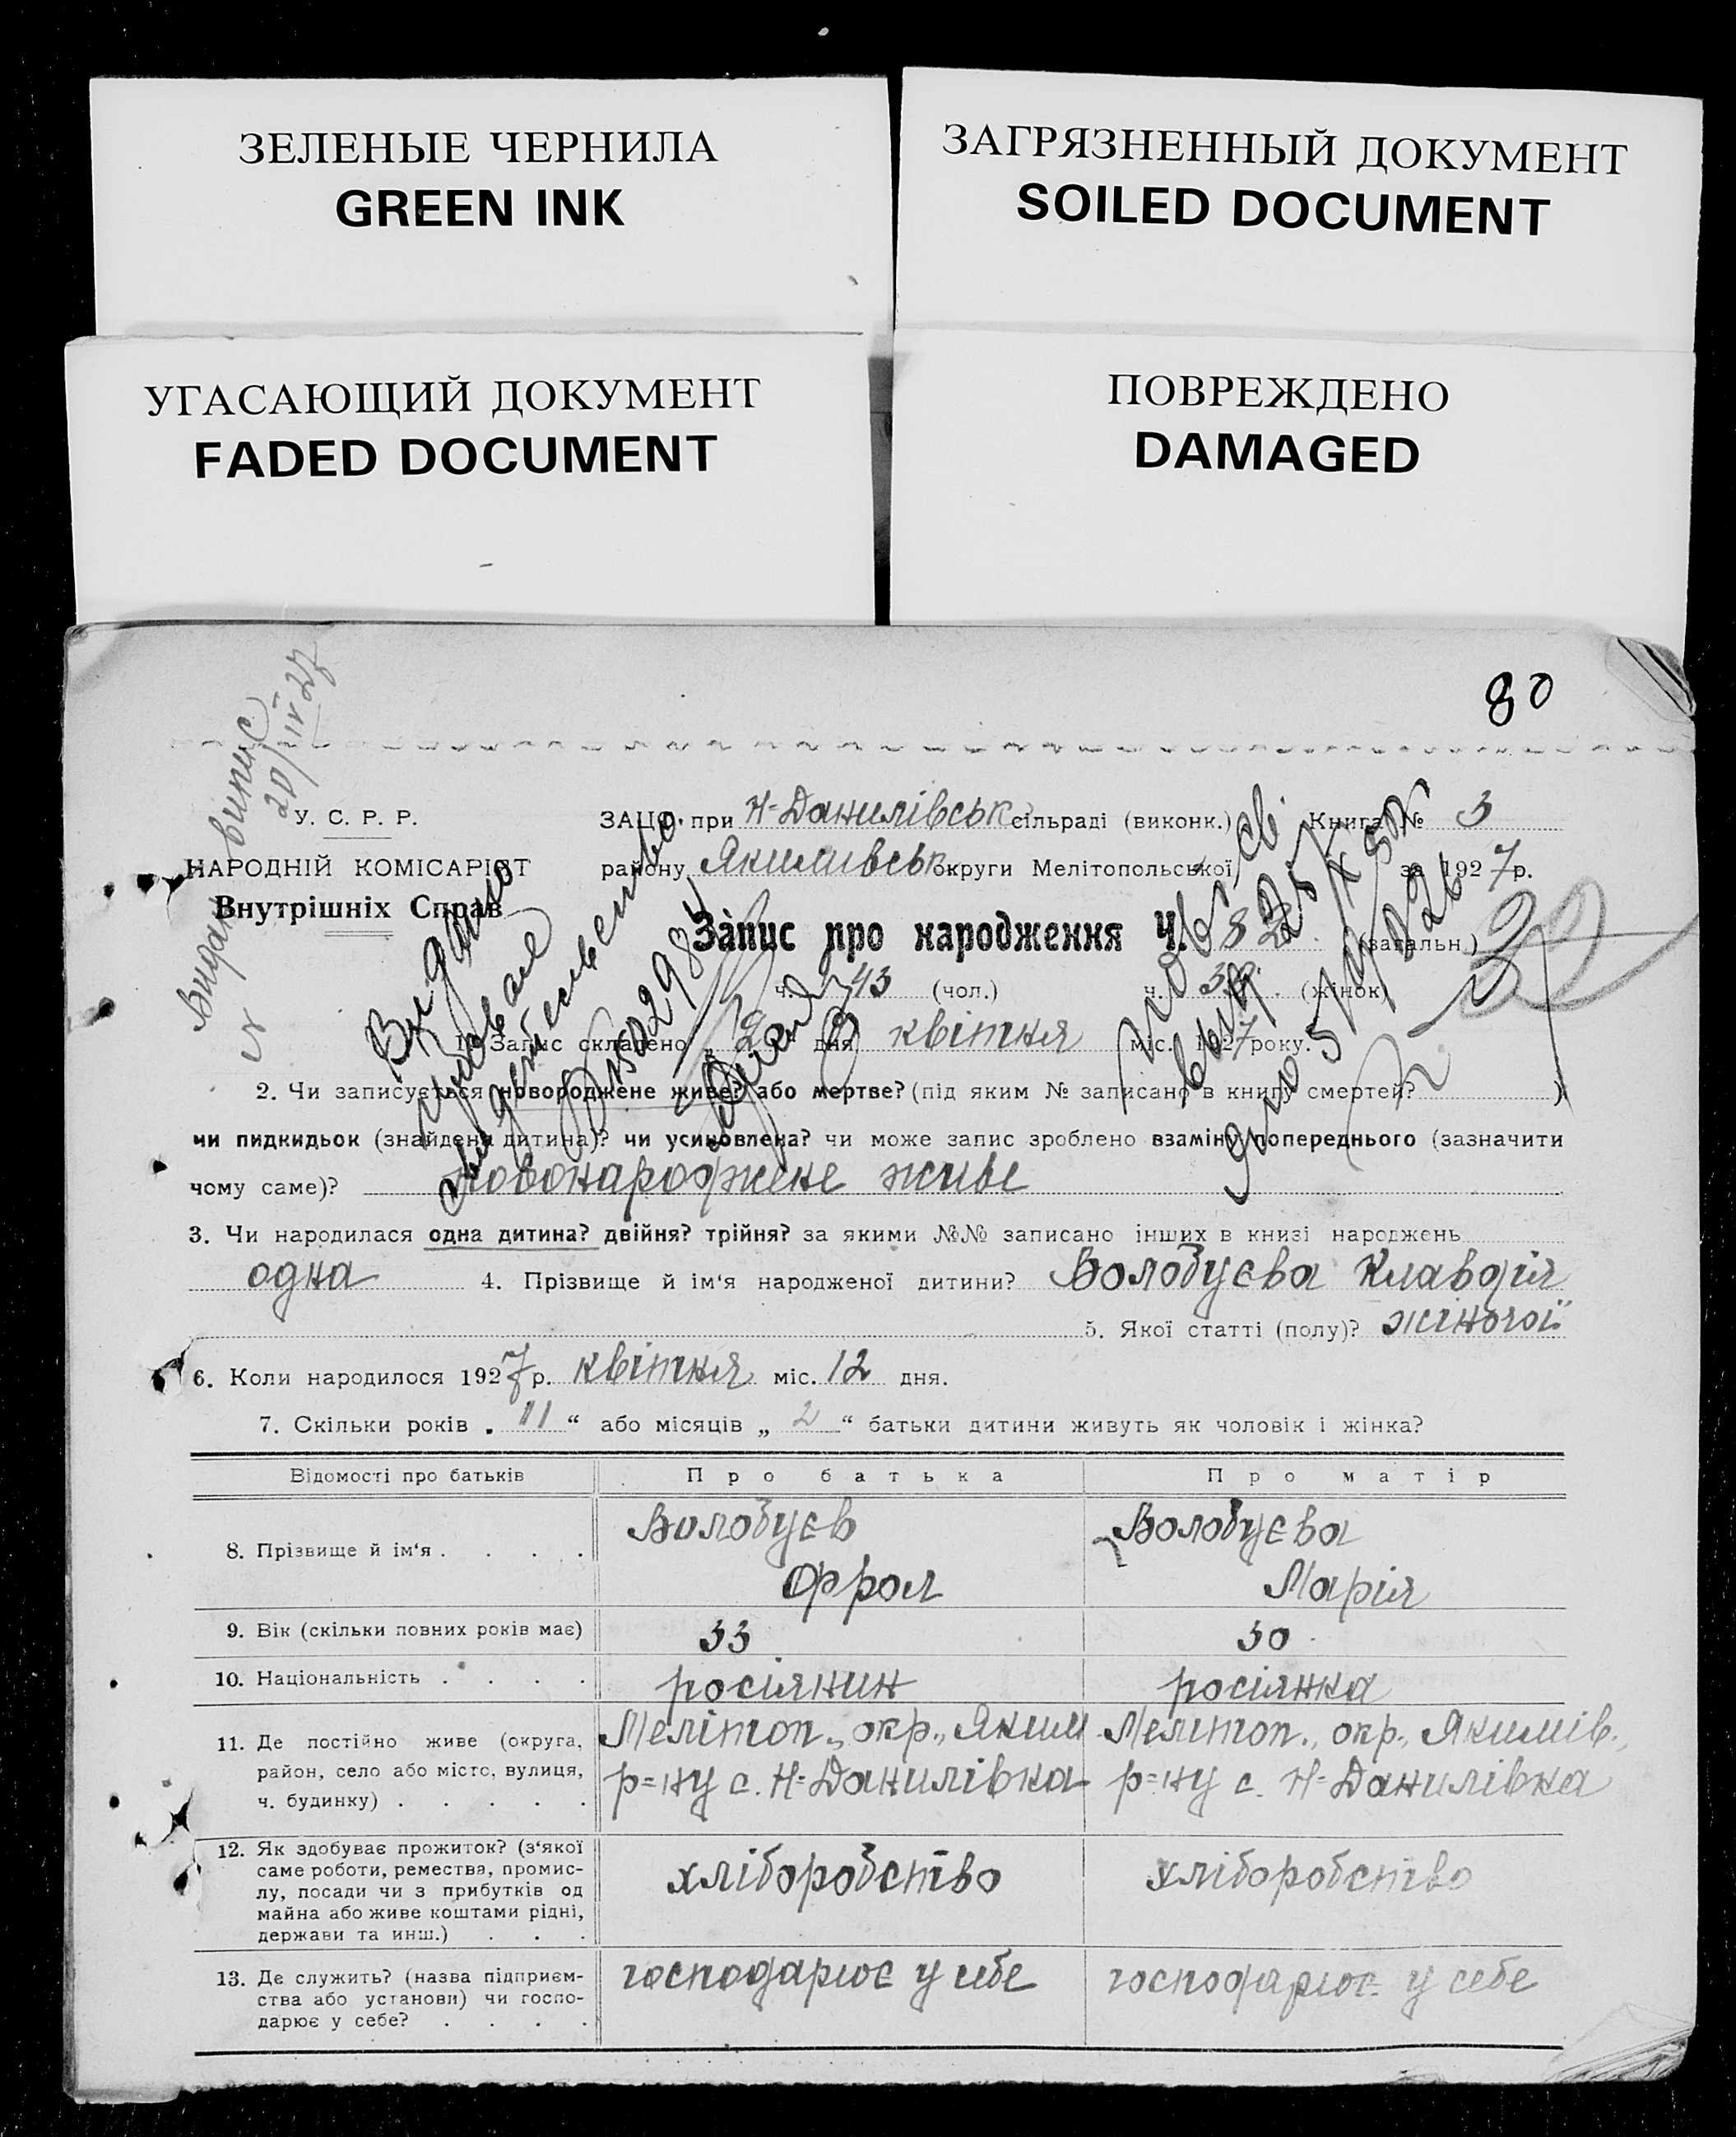 ЗЕЛЕНЫЕ ЧЕРНИЛА
GREEN INK
ЗАГРЯЗНЕННЫЙ ДОКУМЕНТ
SOILED DOCUMENT
УГАСАЮЩИЙ ДОКУМЕНТ
FADED DOCUMENT
ПОВРЕЖДЕНО
DAMAGED
80
Видан випис
20/IV 27
У. С. Р. Р.
НАРОДНІЙ КОМІСАРІЯТ
Внутрішніх Справ
ЗАЦС при Н-Данилівськ сільраді (виконк.) Книга № 3
району Якимивськ округи Мелітопольської за 1927 р.
Запис про народження Ч. 82 (загальн.)
ч. 43 (чол.) ч. 39 (жінок)
1. Запис складено „20“ дня квітня міс. 1927 року.
2. Чи записується новороджене живе? або мертве? (під яким № записано в книгу смертей? )
чи пидкидьок (знайдена дитина)? чи усиновлена? чи може запис зроблено взамін попереднього (зазначити
чому саме)? новонароджене живе
3. Чи народилася одна дитина? двійня? трійня? за якими №№ записано інших в книзі народжень
одна 4. Прізвище й ім'я народженої дитини? Волобуєва Клавдія
5. Якої статті (полу)? жіночої
6. Коли народилося 1927 р. квітня міс. 12 дня.
7. Скільки років „ 11 “ або місяців „ 2 “ батьки дитини живуть як чоловік і жінка?
Відомості про батьків Про батька Про матір
8. Прізвище й ім'я . . . . Волобуєв Фрол Волобуєва Марія
9. Вік (скільки повних років має) 33 30
10. Національність . . . . росіянин росіянка
11. Де постійно живе (округа, район, село або місто, вулиця, ч. будинку) . . . . .
Мелітоп., окр., Яким р=ну с. Н-Данилівка
Мелітоп., окр., Якимів., р=ну с. Н-Данилівка
12. Як здобуває прожиток? (з'якої
саме роботи, ремества, промис-
лу, посади чи з прибутків од
майна або живе коштами рідні,
держави та инш.) . . .
хліборобство хліборобство
13. Де служить? (назва підприєм-
ства або установи) чи госпо-
дарює у себе? . . . .
господарює у себе господарює у себе
Видано